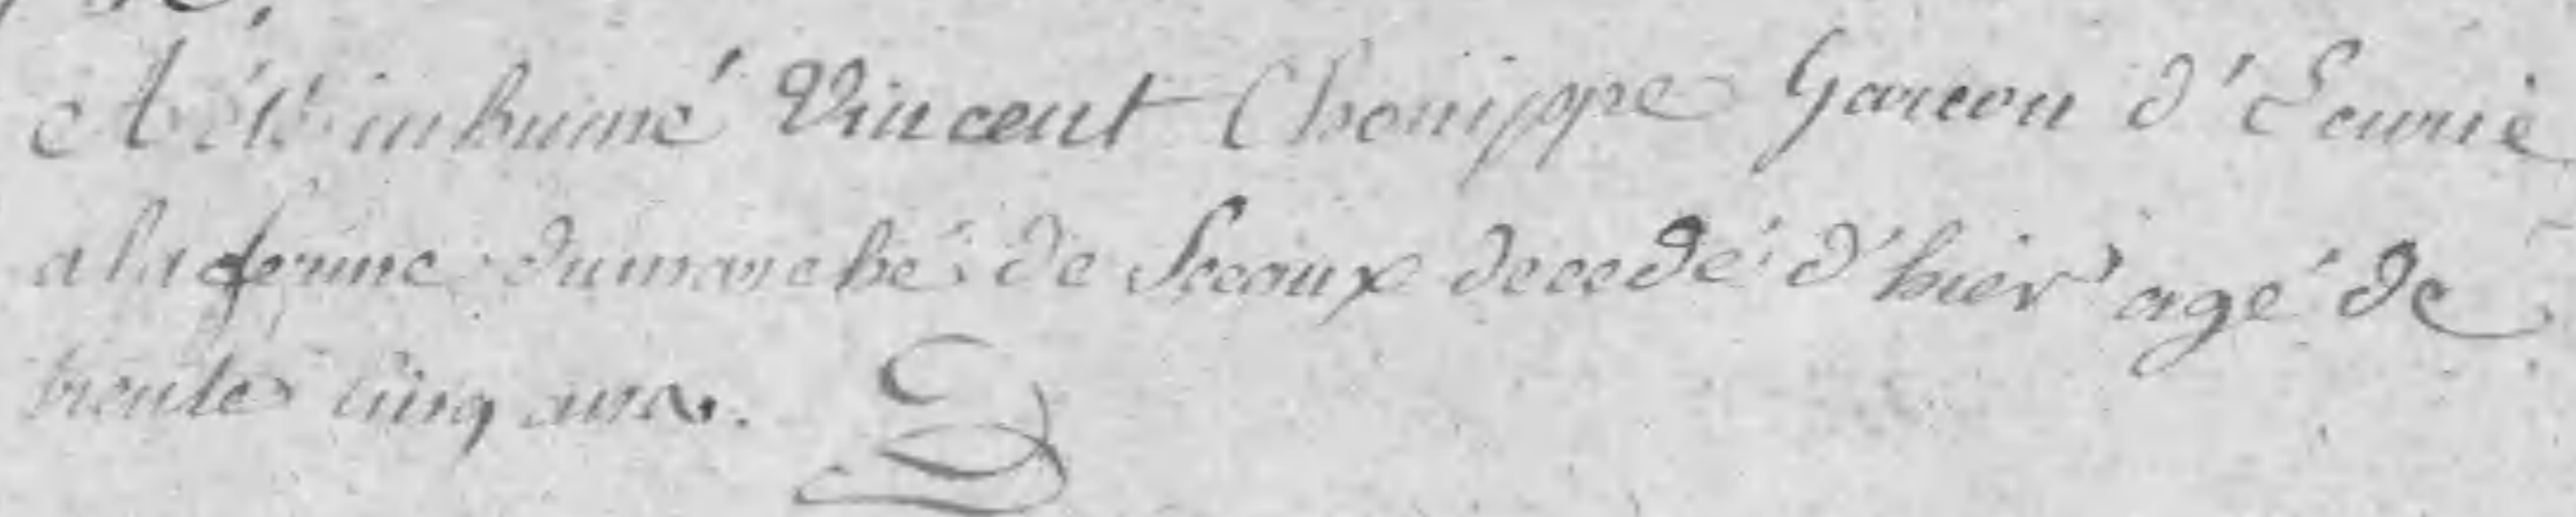 A été inhumé Vincent Chouippe Garcon d'Ecurie
a la ferme du marché de Sceaux decedé d'hier agé de
trente cinq ans.